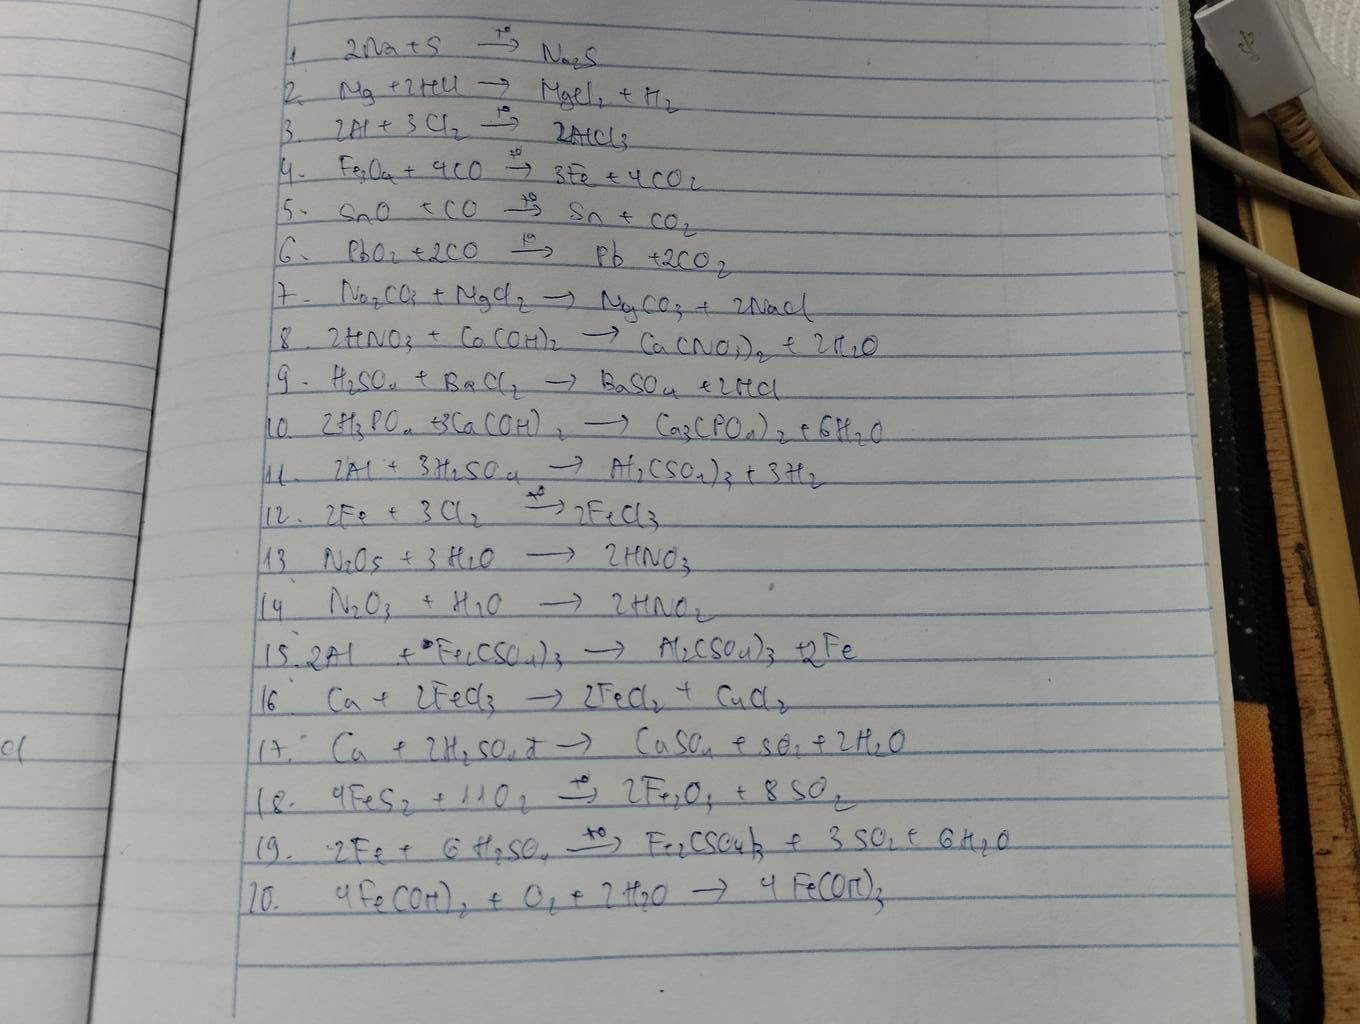 1 2Na + S t°→ Na2S
2. Mg + 2HCl → MgCl2 + H2
3. 2Al + 3Cl2 t°→ 2AlCl3
4. Fe3O4 + 4CO t°→ 3Fe + 4CO2
5. SnO + CO t°→ Sn + CO2
6. PbO2 + 2CO t°→ Pb + 2CO2
7. Na2CO3 + MgCl2 → MgCO3 + 2NaCl
8. 2HNO3 + Ca(OH)2 → Ca(NO3)2 + 2H2O
9. H2SO4 + BaCl2 → BaSO4 + 2HCl
10. 2H3PO4 + 3Ca(OH)2 → Ca3(PO4)2 + 6H2O
11. 2Al + 3H2SO4 → Al2(SO4)3 + 3H2
12. 2Fe + 3Cl2 t°→ 2FeCl3
13 N2O5 + 3H2O → 2HNO3
14 N2O3 + H2O → 2HNO2
15. 2Al + Fe2(SO4)3 → Al2(SO4)3 + 2Fe
16 Cu + 2FeCl3 → 2FeCl2 + CuCl2
17. Cu + 2H2SO4 đ → CuSO4 + SO2 + 2H2O
18. 4FeS2 + 11O2 t°→ 2Fe2O3 + 8SO2
19. 2Fe + 6H2SO4 t°→ Fe2(SO4)3 + 3SO2 + 6H2O
20. 4Fe(OH)2 + O2 + 2H2O → 4Fe(OH)3